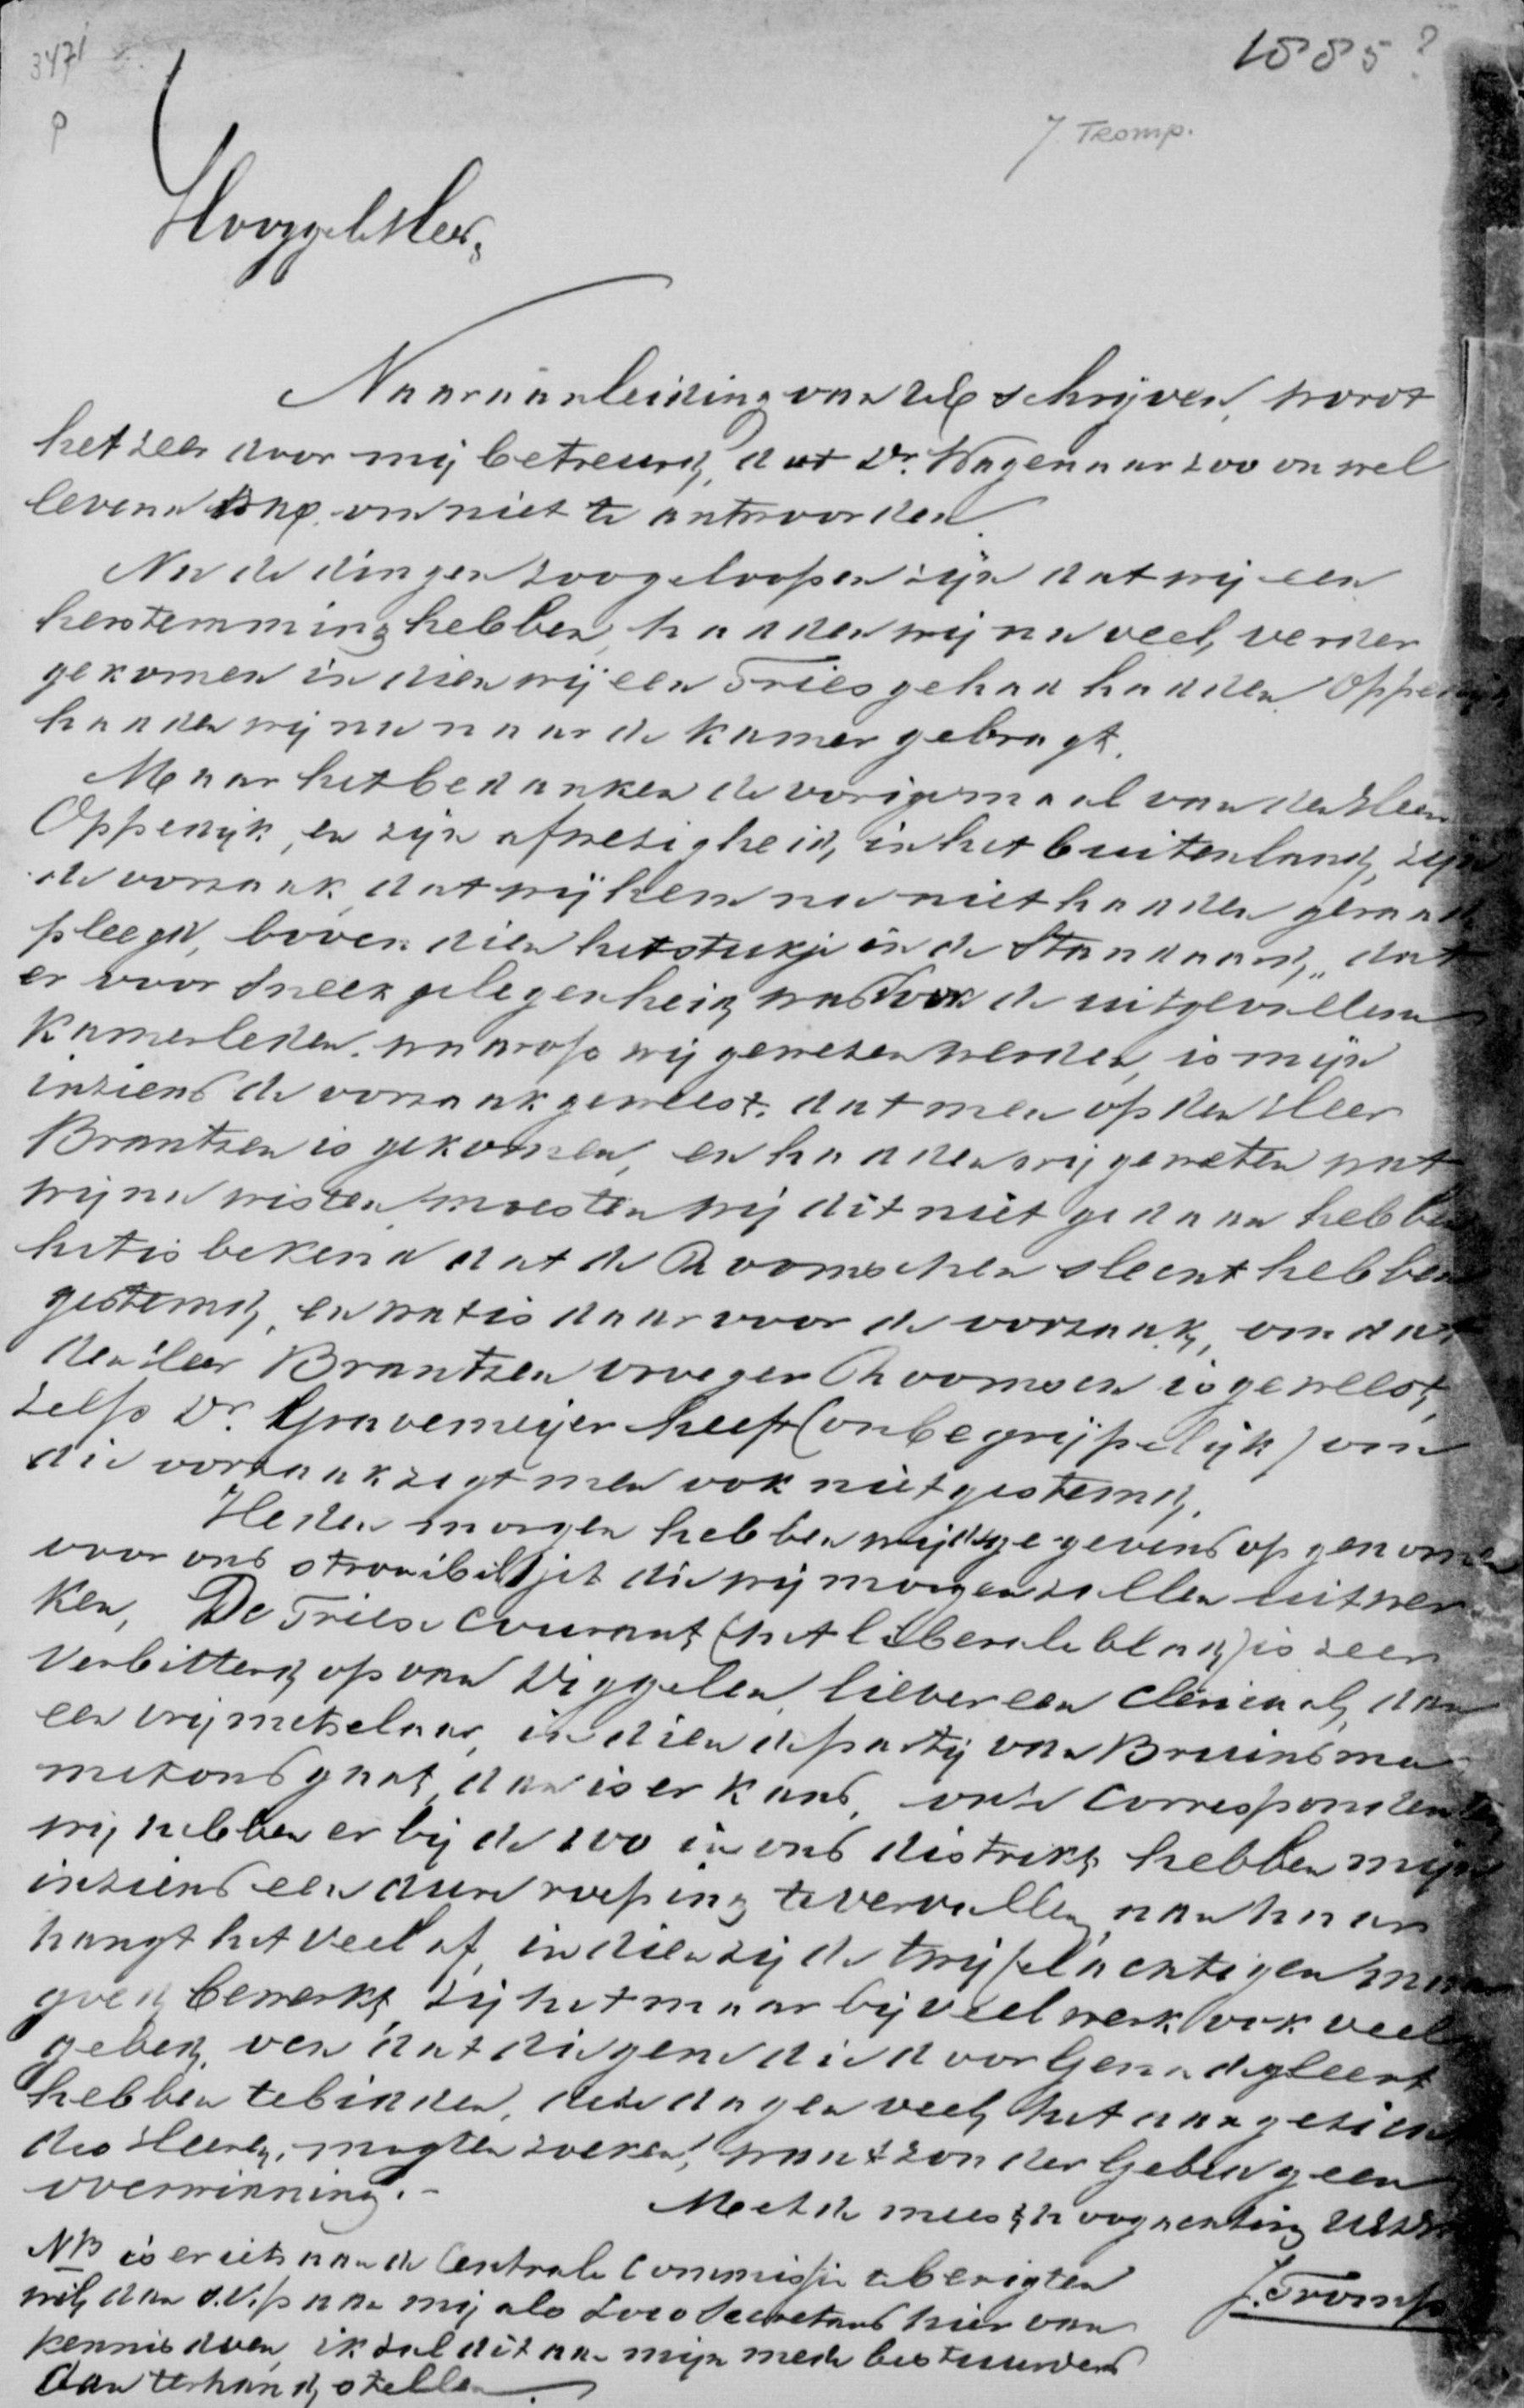 3471
p
1885?
J Tromp.
Hooggel. Heer,
Naar aanleiding van UE schrijven, wordt
het zeer door mij betreurd, dat Dr. Wagenaar zoo onwel
levend is om niet te antwoorden.
Nu de dingen zoo geloopen zijn dat wij een
herstemming hebben, hadden wij nu veel verder
gekomen indien wij een Fries gehad hadden. Oppedijk
hadden wij nu naar de kamer gebragt.
Maar het bedanken de vorigemaal van den Heer
Oppedijk, en zijn afwezigheid, in het buitenland, zijn
de oorzaak, dat wij hem nu niet hadden geraad
pleegd, bovendien het stukje in de Standaard, „dat
er voor Sneek gelegenheid was voor de uitgevallene
Kamerleden. waarop wij gewezen werden, is mijn
inziens de oorzaak geweest. dat men op den Heer
Brantsen is gekomen, en hadden wij geweten wat
wij nu wisten moesten wij dit niet gedaan hebben
het is bekend dat de Roomschen slecht hebben
gestemd, en wat is daarvoor de oorzaak, omdat
den Heer Brantsen vroeger Roomsch is geweest,
zelfs Dr. Gravemeijer heeft (onbegrijpelijk) om
die oorzaak zegt men ook niet gestemd,
Heden morgen hebben wij de gegevens opgenomen
voor ons strooibiljet die wij morgen zullen uitwer
ken, De Friese Courant (het liberale blad) is zeer
Verbitterd op van Diggelen, liever een Clericaal, dan
een vrijmetselaar, indien de partij van Bruinsma
met ons gaat, dan is er kans, onze Correspondenten
wij hebben er bij de 100 in ons distrikt hebben mijn
inziens een dure roeping te vervullen, van haar
hangt het veel af, indien zij de twijfelachtigen maar
goed bewerkt, zij het maar bij veel werk ook veel
gebed, en dat diegene die door Genade geleert
hebben te bidden, deze dagen veel het aangezicht
des Heeren, mogten zoeken, want zonder Gebed geen
overwinning. –
Met de meeste hoogachting UEDW
J. Tromp
NB is er iets aan de Centrale Commissie te berigten
wil dan s.v.p aan mij als Loco Secretaris hier van
kennis doen, ik zal dit aan mijn mede bestuurders
dan ter hand stellen.